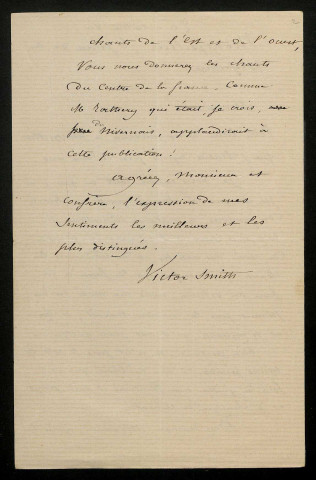 chants de l'Est et de l'Ouest,
Vous nous donnerez les chants
du Centre de la France. Comme
M. Rathery qui était, je crois,
du Nivernais, applaudirait à
cette publication !
Agréez, Monsieur et
confrère, l'expression de mes
sentiments les meilleurs et les
plus distingués.
Victor Smith